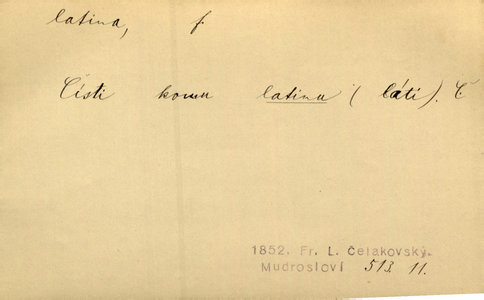 latina, f.
Čísti komu latinu (látí). Č.
1852. Fr. L. Čelakovský.
Mudrosloví 513. 11.